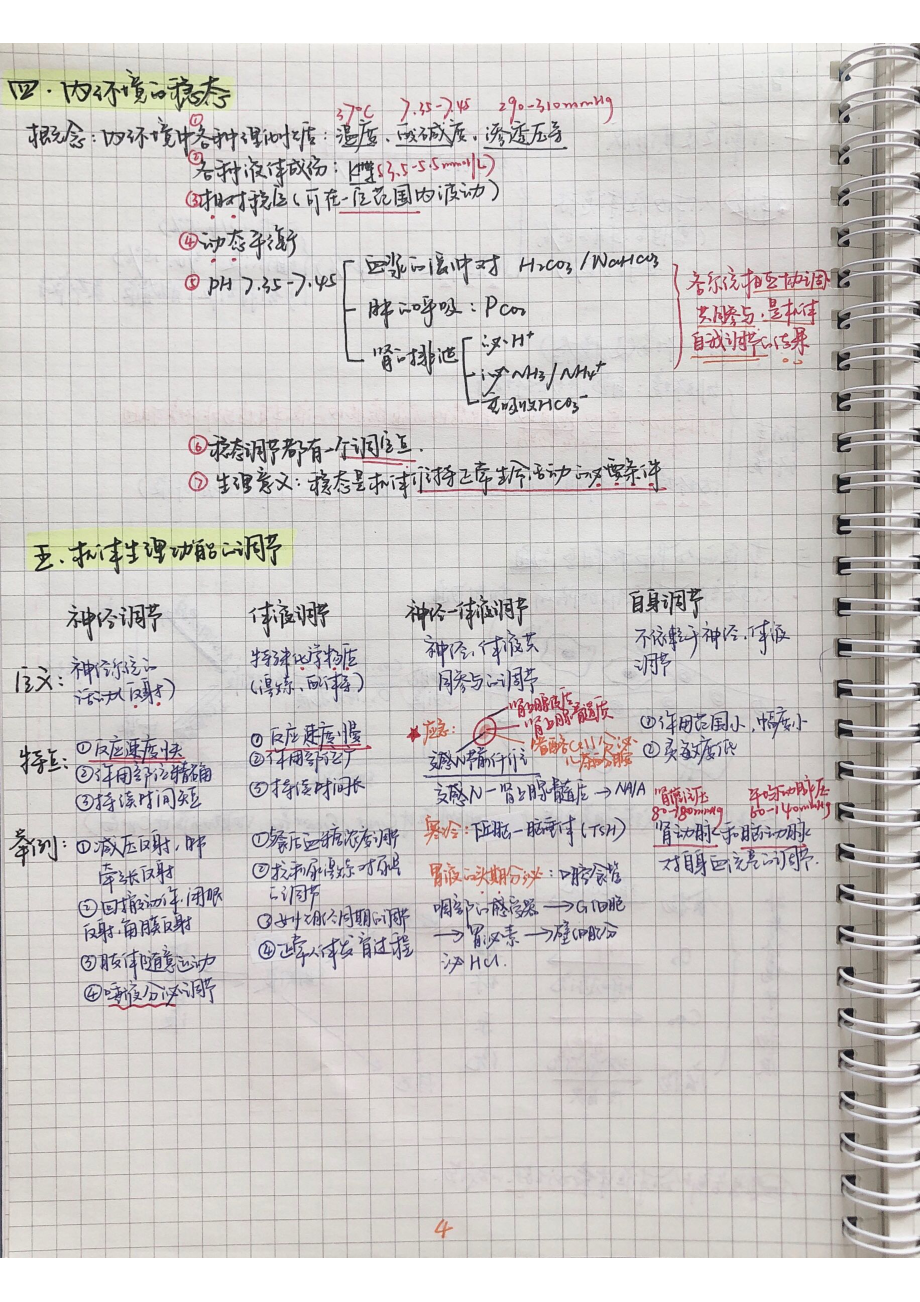 四、内环境的稳态
37℃ 7.35-7.45 290-310mmHg
概念：①内环境中各种理化性质：温度、酸碱度、渗透压等
②各种液体成份：K⁺(3.5-5.5mmol/L)
③相对稳定(可在一定范围内波动)
④动态平衡
⑤PH 7.35-7.45
血浆的缓冲对 H₂CO₃/NaHCO₃
肺的呼吸：PCO₂
肾的排泄
泌H⁺
泌NH₃/NH₄⁺
重吸收HCO₃⁻
各系统相互协调
共同参与,是机体
自我调节的结果
⑥稳态调节都有一个调定点.
⑦生理意义：稳态是机体维持正常生命活动的必要条件
五、机体生理功能的调节
神经调节 体液调节 神经-体液调节 自身调节
定义：
神经系统的
活动(反射)
特殊化学物质
(激素、血液等)
神经、体液共
同参与的调节
不依赖于神经、体液
调节
特点：
①反应速度快
②作用部位精确
③持续时间短
①反应速度慢
②作用部位广
③持续时间长
*应急：
肾上腺皮质
肾上腺髓质
分泌
儿茶酚胺
交感N节前纤维
交感N—肾上腺髓质→NA/A
①作用范围小,幅度小
②灵敏度低
举例：
①减压反射、肺
牵张反射
②回撤动作、闭眼
反射、角膜反射
③肢体随意运动
④唾液分泌调节
①餐后血糖浓度调节
②抗利尿激素对尿量
的调节
③女性月经周期的调节
④正常人体发育过程
寒冷：下丘脑—腺垂体(TSH)
胃液的头期分泌：口腔食管
咽部的感受器→G细胞
→胃泌素→壁细胞分
泌HCl.
肾灌注压
80-180mmHg
平均动脉压
60-140mmHg
肾动脉和脑动脉
对自身血流量的调节.
4